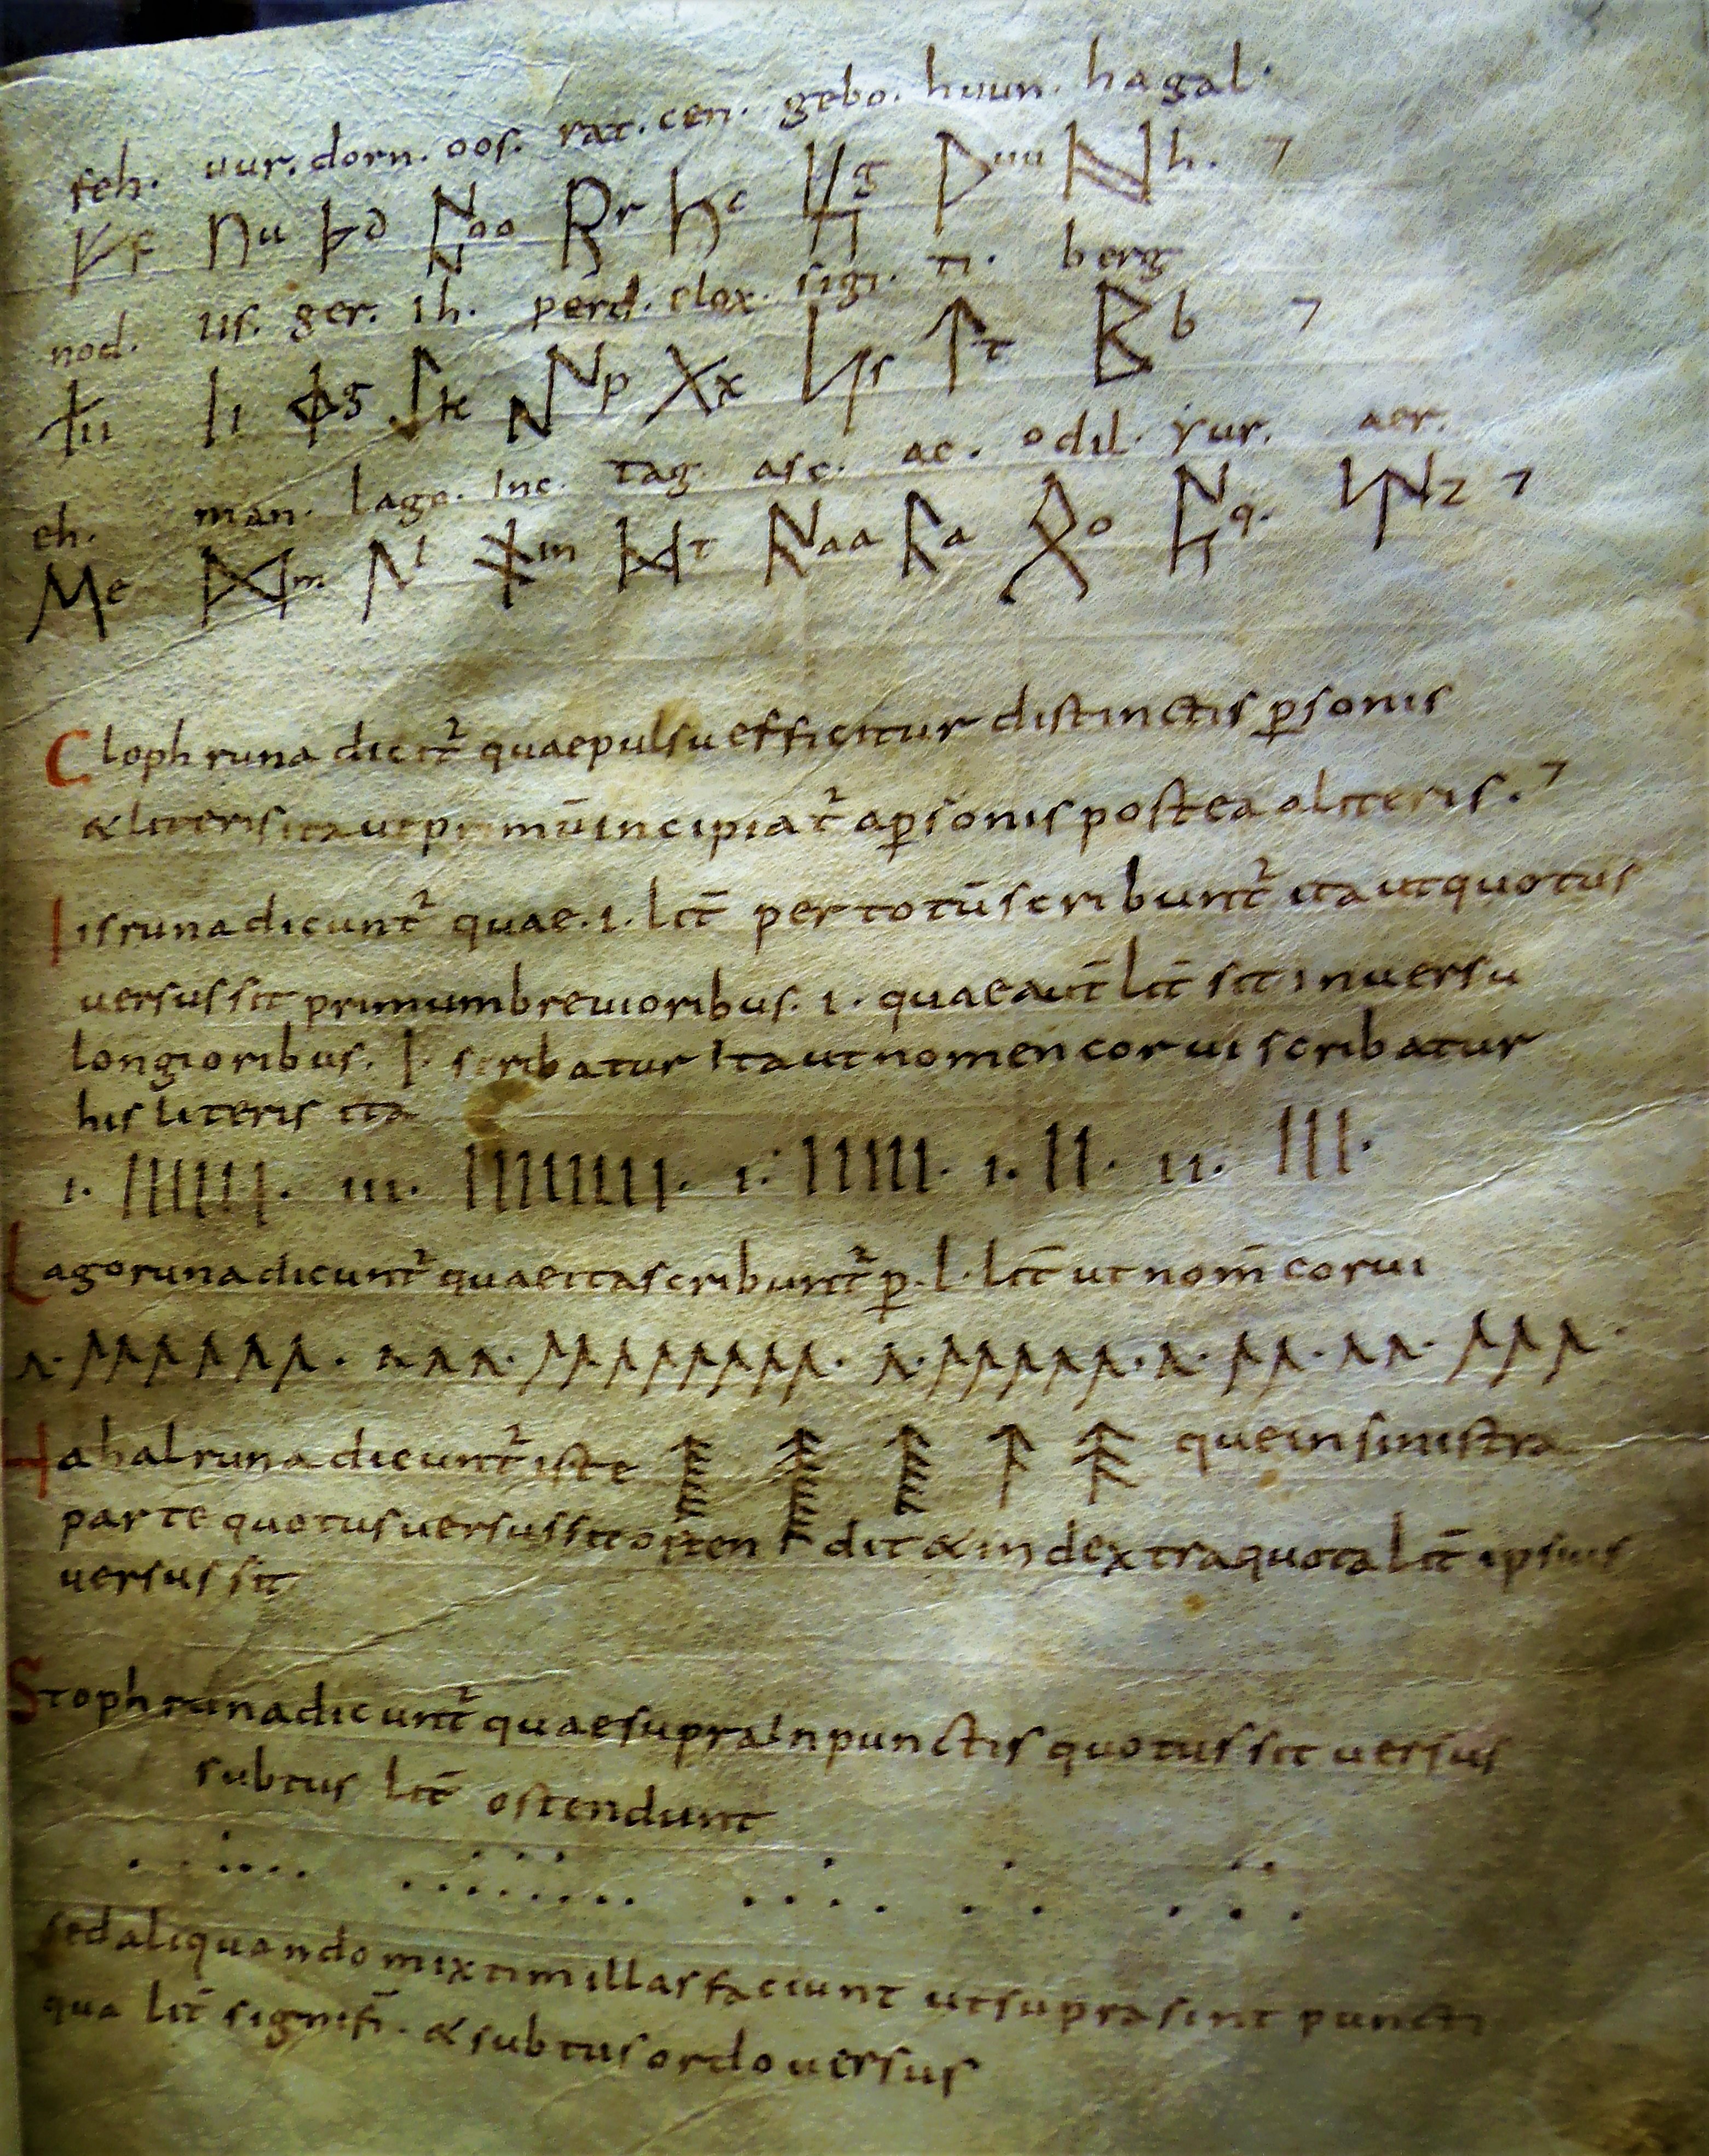 feh. uur. dorn. oos. rat. cen. gebo. huun. hagal.
ᚠ f ᚢ u ᚦ d ᚩ oo ᚱ r ᚳ c g ᚹ uu ᚻ h. ⁊
nod. iis. ger. ih. perd. elox. sigi. ti. berg
ᚾ n ᛁ i ᛄ g ᛇ k ᛈ p x ᛋ s ᛏ t ᛒ b ⁊
eh. man. lago. Inc. tag. asc. ac. odil. yur. aer.
ᛖ e ᛗ m ᛚ l ᛝ in ᛞ t ᚪ aa ᚨ a ᛟ o q. z ⁊
Clophruna dicit᷑ quae pulsu efficitur distinctis ꝑsonis
& literis ita ut primū incipiat᷑ a ꝑsonis postea a literis. ⁊
Iisruna dicunt᷑ quae .i. lit̄ per totū scribunt᷑ ita ut quotus
uersus sit primum breuioribus. i. quae aut̄ lit̄ sit in uersu
longioribus. I. scribatur Ita ut nomen corui scribatur
his literis ita
i. IIIIII. iii. IIIIIIII. i. IIIII. i. II. ii. III.
Lagoruna dicunt᷑ quae ita scribunt᷑ ꝑ .l. lit̄ ut nom̄ corui
ᛚ. ᛚᛚᛚᛚᛚᛚ. ᛚᛚᛚ. ᛚᛚᛚᛚᛚᛚᛚᛚ. ᛚ. ᛚᛚᛚᛚᛚ. ᛚ. ᛚᛚ. ᛚᛚ. ᛚᛚᛚ.
Hahalruna dicunt᷑ iste que in sinistra
parte quotus uersus sit osten dit & in dextra quota lit̄ ipsius
uersus sit
Stophruna dicunt᷑ quae supra In punctis quotus sit uersus
subtus lit̄ ostendunt
sed aliquando mixtim illas faciunt ut supra sint puncti
qua lit̄ signifi̅. & subtus ordo uersus